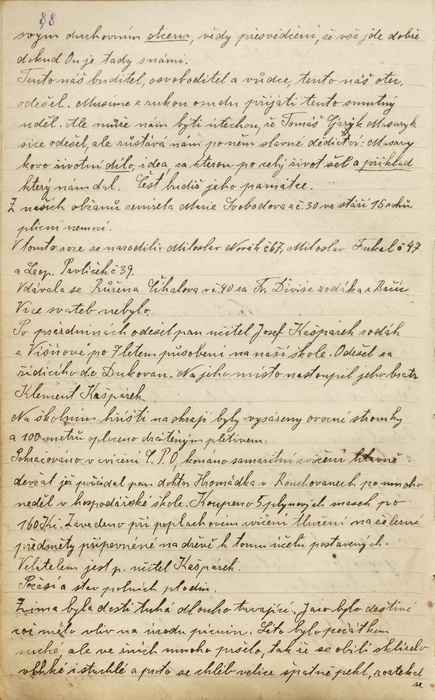 88
svým duchovním otcem, vždy přesvědčeni, že vše jde dobře
dokud On je tady s námi.
Tento náš buditel, osvoboditel a vůdce, tento náš otec
odešel. Musíme z rukou osudu přijati tento smutný
úděl. Ale může nám býti útěchou, že Tomáš Garyk Masaryk
sice odešel, ale zůstává nám po něm slavné dědictví: Masary
kovo životní dílo, idea za kterou po celý život šel a příklad
který nám dal. Čest budiž jeho památce.
Z našich občanů zemřela Marie Svobodova z č. 30 ve stáří 15 roků
plicní nemocí.
V tomto roce se narodili: Miloslav Novák č 67, Miloslav Fukal č 47
a Leop. Pavlíček č 39.
Vdávala se Růžena Číhalova z č 90 za Fr. Diviše
Více svateb nebylo.
Po prázdninách odešel pan učitel Josef Kašpárek rodák
z Višňové po 7 letém působení na naší škole. Odešel za
řídícího do Dukovan. Na jeho místo nastoupil jeho bratr
Klement Kašpárek.
Na školním hřišti na okraji byly vysázeny ovocné stromky
a 100 metrů oploceno drátěným pletivem.
Pokračováno v cvičení C.P.O, konáno samaritní cvičení hlavně
devět jej přednášel pan doktor Hromádka z Rouchovan po mnoho
neděl v hospodářské škole. Koupeno 5 plynových masek po
160 Kč. Zavedeno při poplachovém cvičení tlučení na železné
předměty připevněné na dřevě k tomu účelu postavených.
Velitelem jest p. učitel Kašpárek.
Počasí a stav polních plodin.
Zima byla dosti tuhá dlouho trvající. Jaro bylo deštivé
což mělo vliv na úrodu pícnin. Léto bylo počátkem
suché, ale ve žních mnoho pršelo, tak že se obilí sklízelo
vlhké i stuchlé a proto se chléb velice špatně pekl, roztékal
se